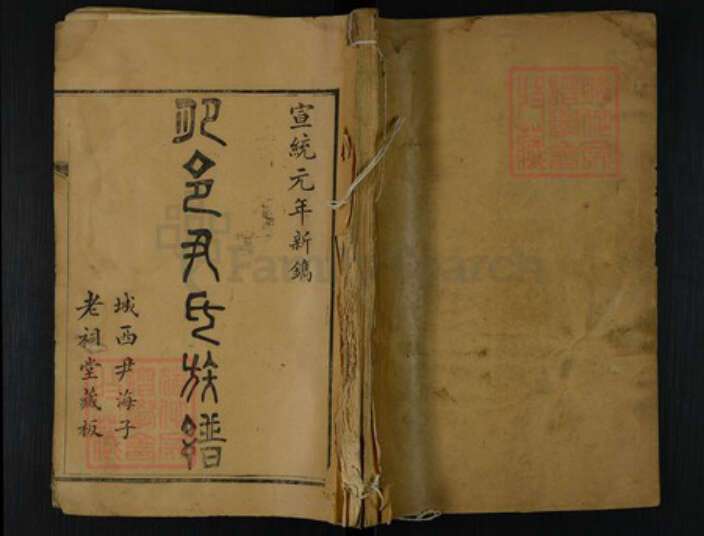 宣統元年新鐫
邑尹氏族譜
城西尹海子
老祠堂藏板
FamilySearch